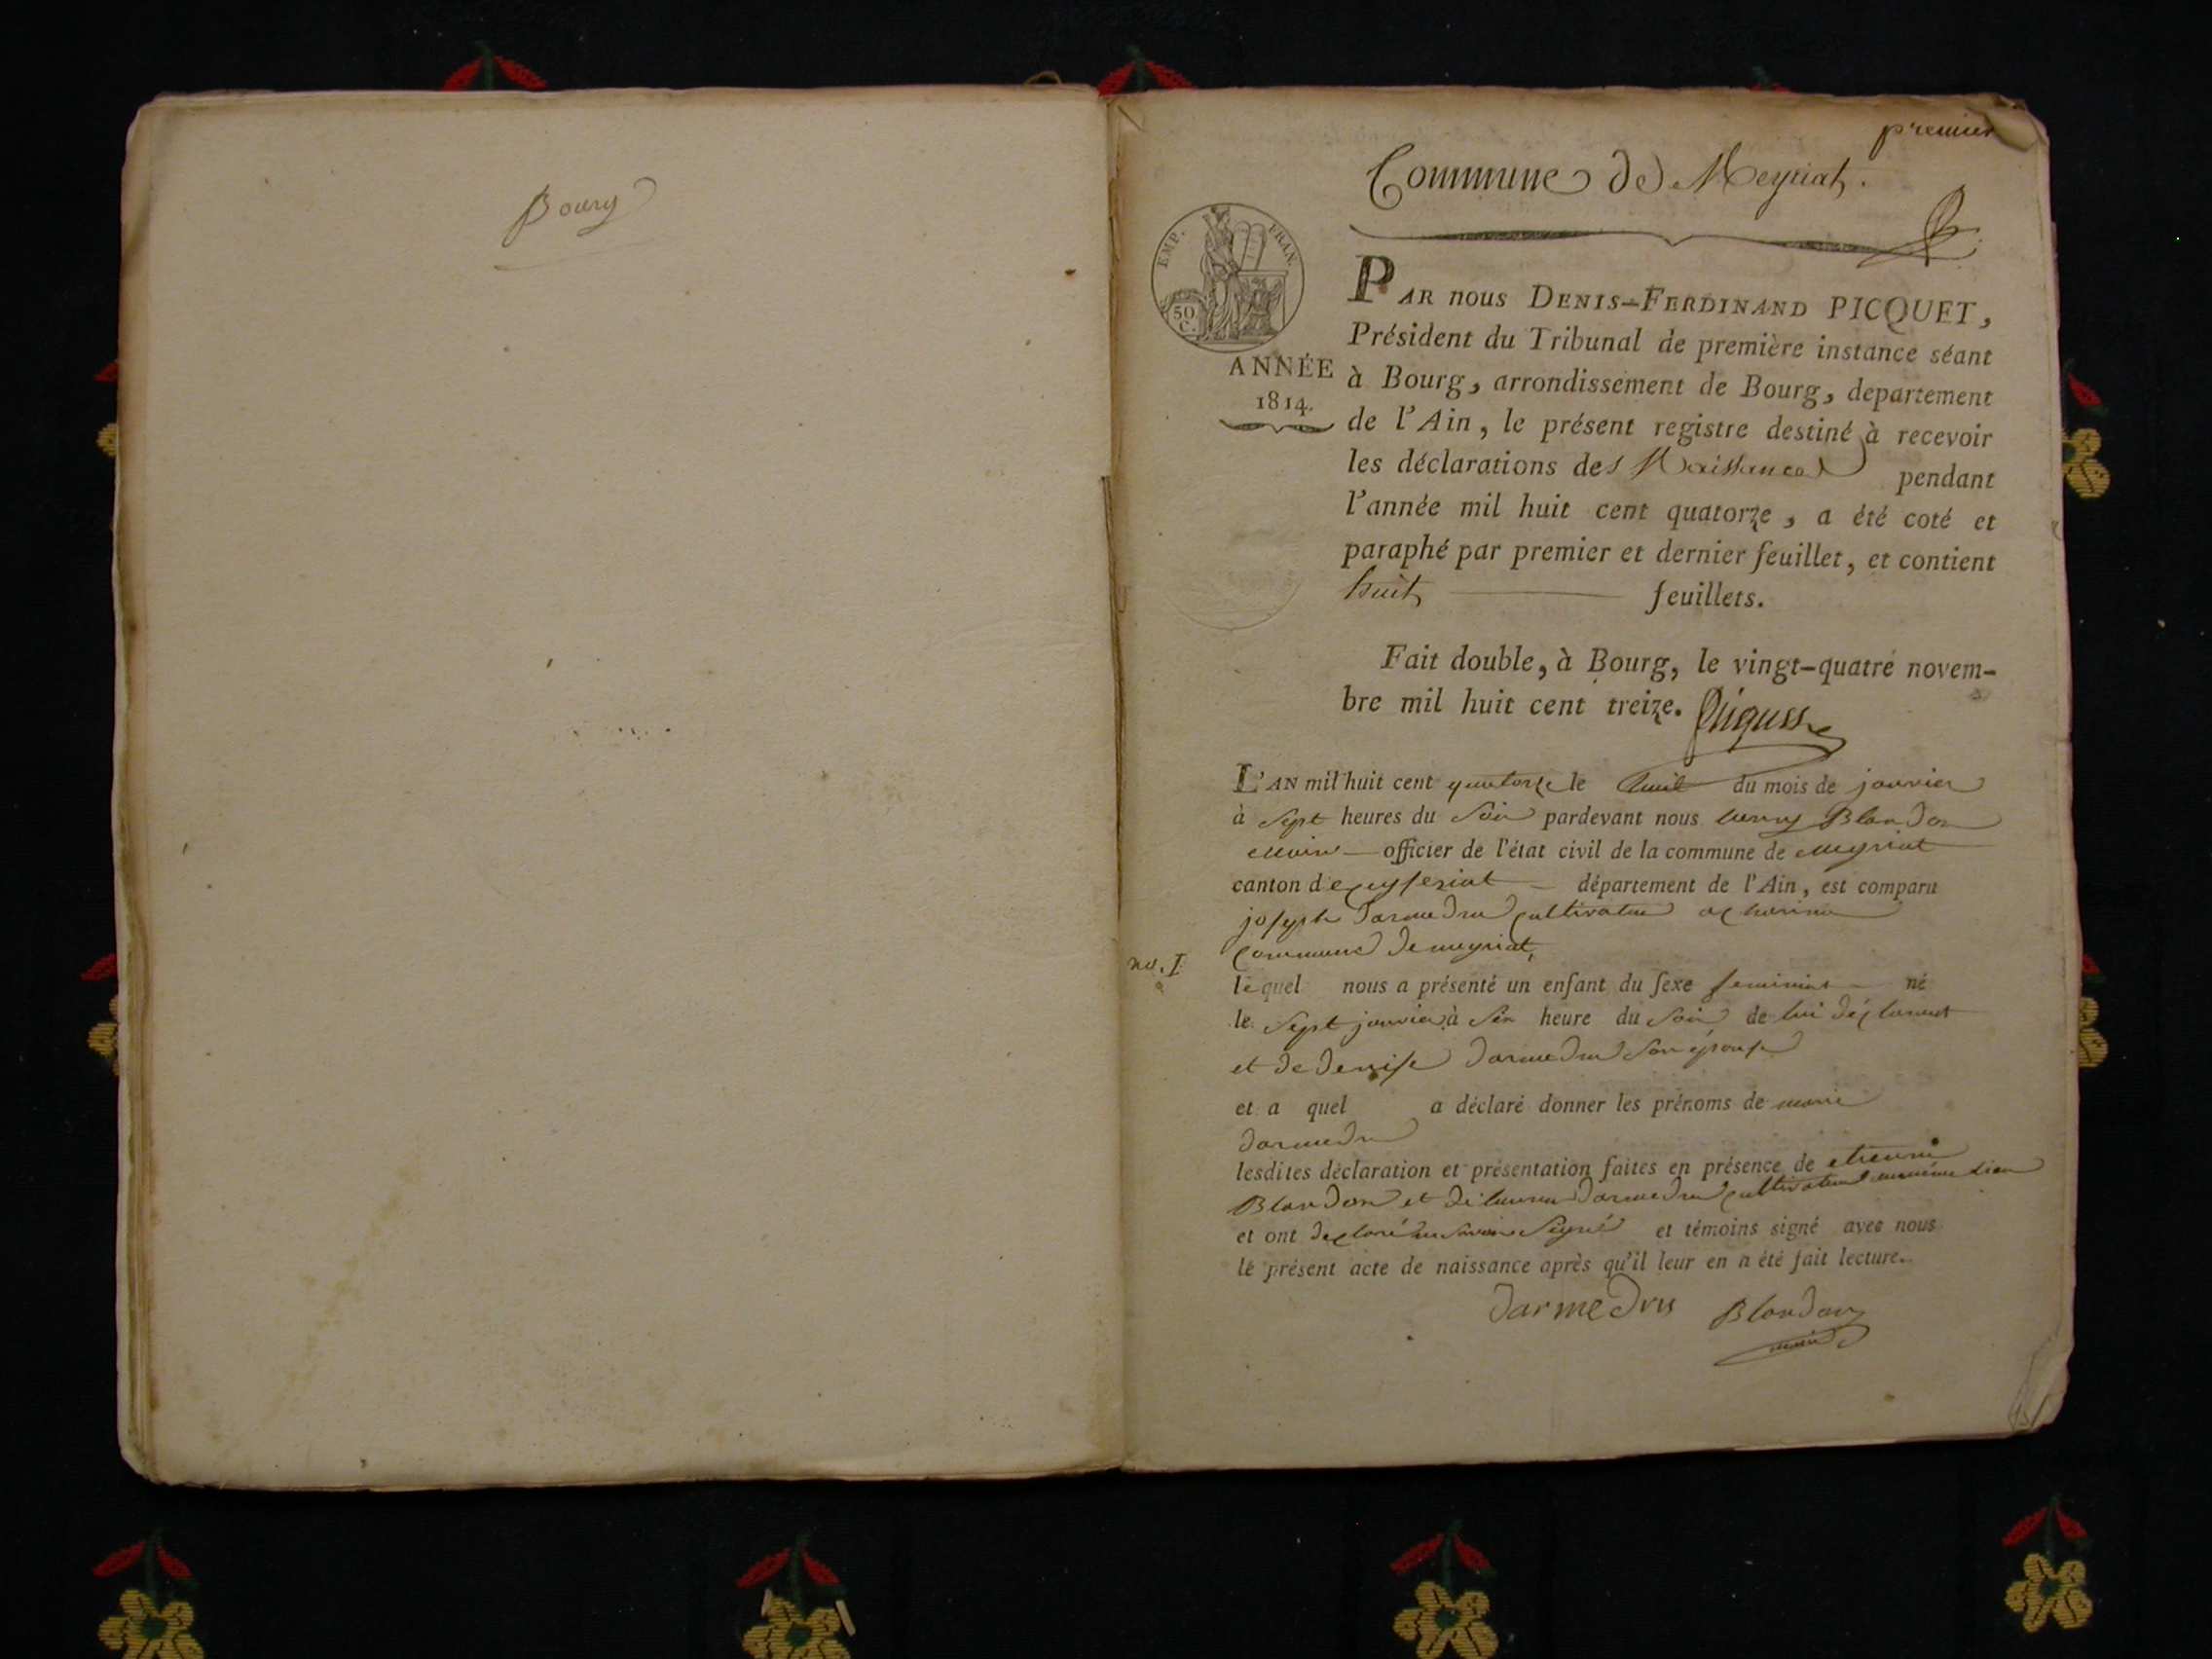 Bourg
premier
Commune de Meyriat.
EMP. FRAN.
50 C.
ANNÉE
1814.
PAR nous DENIS-FERDINAND PICQUET,
Président du Tribunal de première instance séant
à Bourg, arrondissement de Bourg, departement
de l'Ain, le présent registre destiné à recevoir
les déclarations des Naissances pendant
l'année mil huit cent quatorze, a été coté et
paraphé par premier et dernier feuillet, et contient
huit feuillets.
Fait double, à Bourg, le vingt-quatre novem-
bre mil huit cent treize.
L'AN mil huit cent quatorze le huit du mois de janvier
à sept heures du soir pardevant nous Blandon
maire officier de l'état civil de la commune de meyriat
canton de ceyseriat département de l'Ain, est comparu
joseph darmedru cultivateur
commune de meyriat,
no. I
lequel nous a présenté un enfant du sexe feminin né
le sept janvier à six heure du soir de lui déclarant
et de denise darmedru son épouse
et a quel a déclaré donner les prénoms de marie
darmedru
lesdites déclaration et présentation faites en présence de etienne
Blandon et de darmedru cultivateurs lieu
et ont declaré ne savoir signé et témoins signé avec nous
le présent acte de naissance après qu'il leur en a été fait lecture.
darmedru Blandon
maire